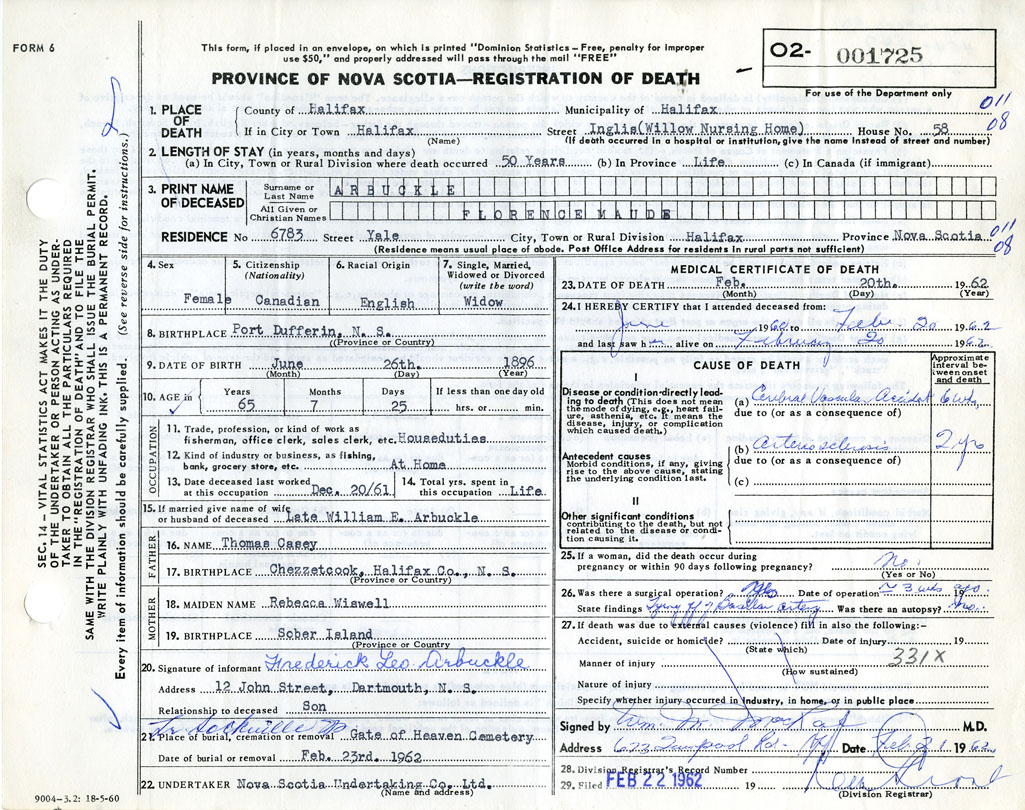 FORM 6
This form, if placed in an envelope, on which is printed "Dominion Statistics – Free, penalty for improper
use $50," and properly addressed will pass through the mail "FREE"
PROVINCE OF NOVA SCOTIA—REGISTRATION OF DEATH
O2- 001725
For use of the Department only
SEC. 14 – VITAL STATISTICS ACT MAKES IT THE DUTY
OF THE UNDERTAKER OR PERSON ACTING AS UNDER-
TAKER TO OBTAIN ALL THE PARTICULARS REQUIRED
IN THE "REGISTRATION OF DEATH" AND TO FILE THE
SAME WITH THE DIVISION REGISTRAR WHO SHALL ISSUE THE BURIAL PERMIT.
WRITE PLAINLY WITH UNFADING INK. THIS IS A PERMANENT RECORD.
Every item of information should be carefully supplied. (See reverse side for instructions.)
1. PLACE OF DEATH
County of Halifax Municipality of Halifax 011
If in City or Town Halifax Street Inglis(Willow Nursing Home) House No. 58 08
(Name) (If death occurred in a hospital or institution, give the name instead of street and number)
2. LENGTH OF STAY (in years, months and days)
(a) In City, Town or Rural Division where death occurred 50 Years (b) In Province Life (c) In Canada (if immigrant)
3. PRINT NAME OF DECEASED
Surname or Last Name ARBUCKLE
All Given or Christian Names FLORENCE MAUDE
RESIDENCE No 6783 Street Yale City, Town or Rural Division Halifax Province Nova Scotia 011
(Residence means usual place of abode. Post Office Address for residents in rural parts not sufficient) 08
4. Sex Female
5. Citizenship (Nationality) Canadian
6. Racial Origin English
7. Single, Married, Widowed or Divorced (write the word) Widow
8. BIRTHPLACE Port Dufferin, N. S.
(Province or Country)
9. DATE OF BIRTH June 26th. 1896
(Month) (Day) (Year)
10. AGE in Years Months Days If less than one day old
65 7 25 hrs. or min.
OCCUPATION
11. Trade, profession, or kind of work as
fisherman, office clerk, sales clerk, etc. Houseduties
12. Kind of industry or business, as fishing,
bank, grocery store, etc. At Home
13. Date deceased last worked at this occupation Dec. 20/61
14. Total yrs. spent in this occupation Life
15. If married give name of wife
or husband of deceased Late William E. Arbuckle
FATHER
16. NAME Thomas Casey
17. BIRTHPLACE Chezzetcook, Halifax Co., N. S.
(Province or Country)
MOTHER
18. MAIDEN NAME Rebecca Wiswell
19. BIRTHPLACE Sober Island
(Province or Country
20. Signature of informant Frederick Leo Arbuckle
Address 12 John Street, Dartmouth, N. S.
Relationship to deceased Son
Lr. Sackville
21. Place of burial, cremation or removal Gate of Heaven Cemetery
Date of burial or removal Feb. 23rd. 1962
22. UNDERTAKER Nova Scotia Undertaking Co. Ltd.
(Name and address)
9004–3.2: 18-5-60
MEDICAL CERTIFICATE OF DEATH
23. DATE OF DEATH Feb. 20th. 1962
(Month) (Day) (Year)
24. I HEREBY CERTIFY that I attended deceased from:
June 1960 to Feb. 20 1962
and last saw her alive on February 20 1962
CAUSE OF DEATH
Approximate interval between onset and death
I
Disease or condition directly lead-
ing to death (This does not mean
the mode of dying, e.g., heart fail-
ure, asthenia, etc. It means the
disease, injury, or complication
which caused death.)
(a) Cerebral Vascular Accident 6 wks
due to (or as a consequence of)
Antecedent causes
Morbid conditions, if any, giving
rise to the above cause, stating
the underlying condition last.
(b) arteriosclerosis 2 yrs
due to (or as a consequence of)
(c)
II
Other significant conditions
contributing to the death, but not
related to the disease or condi-
tion causing it.
25. If a woman, did the death occur during
pregnancy or within 90 days following pregnancy? No.
(Yes or No)
26. Was there a surgical operation? Yes Date of operation 3 wks ago 19
State findings Tying off Basilar artery Was there an autopsy? no.
27. If death was due to external causes (violence) fill in also the following:–
Accident, suicide or homicide? Date of injury 19
(State which)
Manner of injury 331X
(How sustained)
Nature of injury
Specify whether injury occurred in industry, in home, or in public place
Signed by Wm. M. MacKay M.D.
Address Rd. Date Feb. 21 1962
28. Division Registrar's Record Number
29. Filed FEB 22 1962 19
(Division Registrar)